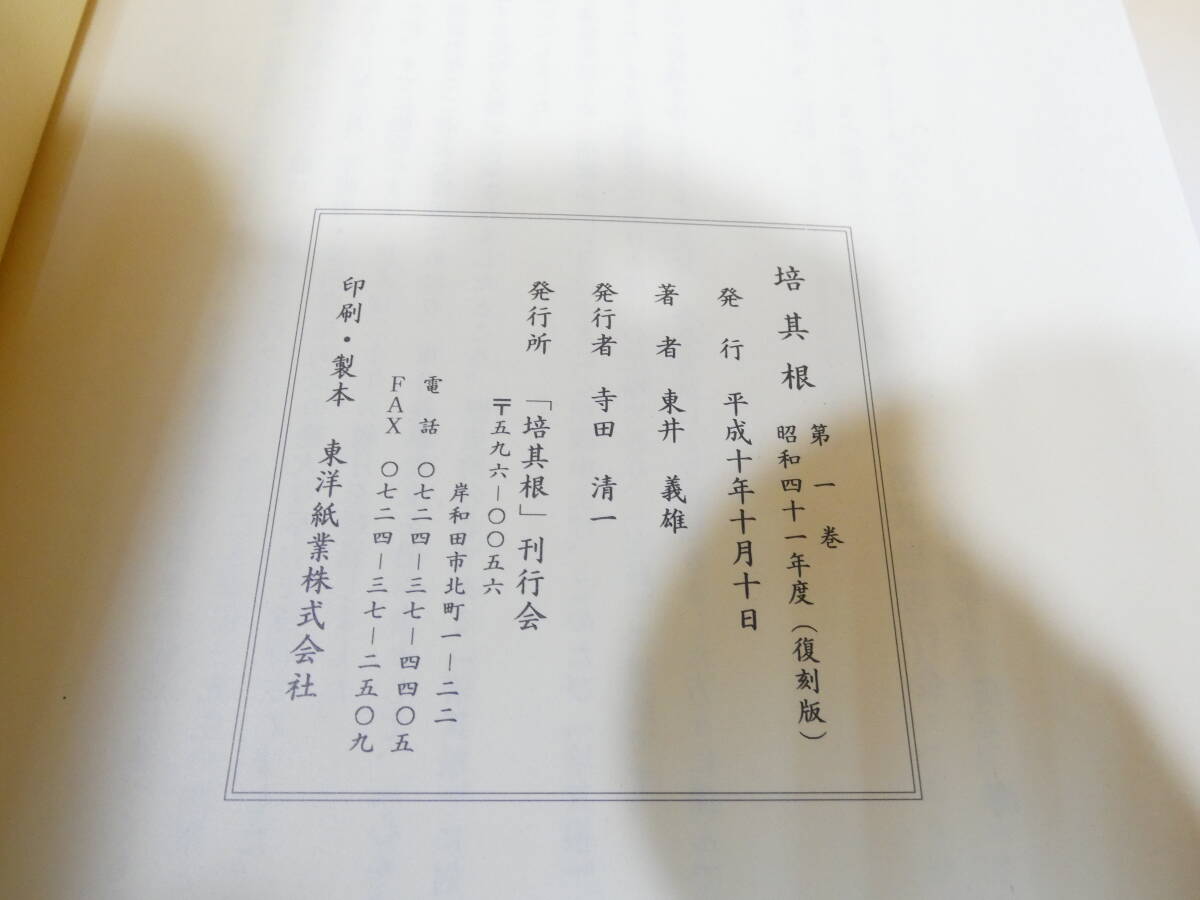 培其根 第一巻
昭和四十一年度（復刻版）
発行 平成十年十月十日
著者 東井義雄
発行者 寺田清一
発行所 「培其根」刊行会
〒五九六－〇〇五六
岸和田市北町一－二二
電話 〇七二四－三七－四四〇五
FAX 〇七二四－三七－二五〇九
印刷・製本 東洋紙業株式会社